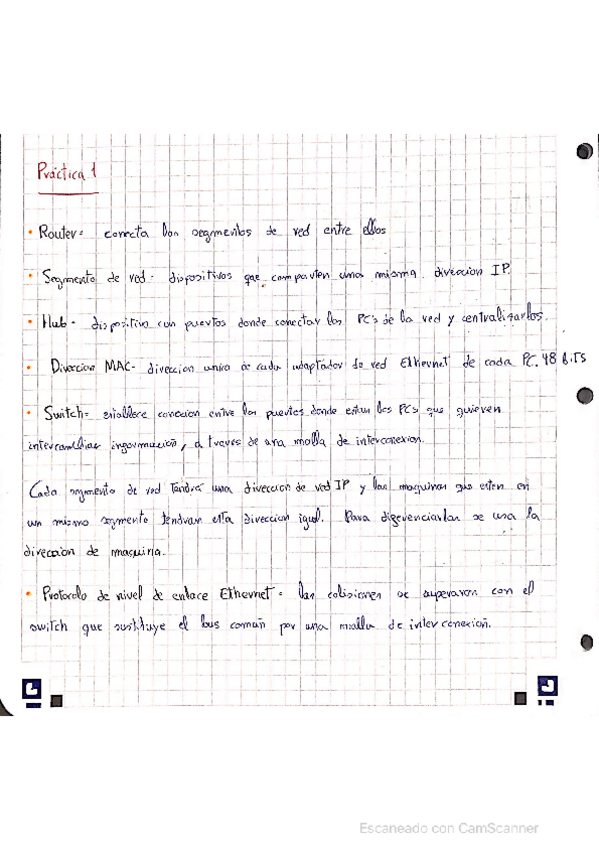 Práctica 1
• Router= conecta los segmentos de red entre ellos
• Segmento de red- dispositivos que comparten una misma direccion IP.
• Hub- dispositivo con puertos donde conectar los PC's de la red y centralizarlos.
• Direccion MAC- direccion unica de cada adaptador de red Ethernet de cada PC. 48 BITS
• Switch= establece conexion entre los puertos donde estan los PCs que quieren
intercambiar información, a traves de una malla de interconexion.
Cada segmento de red tendrá una direccion de red IP y las maquinas que esten en
un mismo segmento tendran esta direccion igual. Para diferenciarlas se usa la
direccion de maquina.
• Protocolo de nivel de enlace Ethernet= las colisiones se superaron con el
switch que sustituye el bus común por una malla de interconexión.
Escaneado con CamScanner